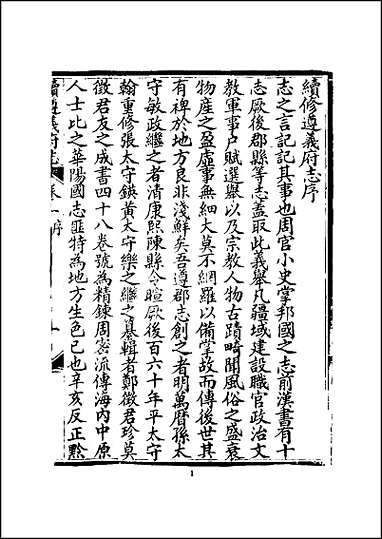 續修遵義府志序
志之言記記其事也周官小史掌邦國之志前漢書有十
志厥後郡縣等志蓋取此義舉凡疆域建設職官政治文
教軍事户賦選舉以及宗教人物古蹟畸聞風俗之盛衰
物產之盈虛事無細大莫不網羅以備掌故而傳後世其
有裨於地方良非淺鮮矣吾遵郡志創之者明萬曆孫太
守敏政繼之者清康熙陳縣令暄厥後百六十年平太守
翰重修張太守鍈黃太守樂之繼之纂輯者鄭徵君珍莫
徵君友之成書四十八卷號為精鍊周密流傳海內中原
人士比之華陽國志匪特為地方生色已也辛亥反正黔
續遵義府志 卷一 序 一
1